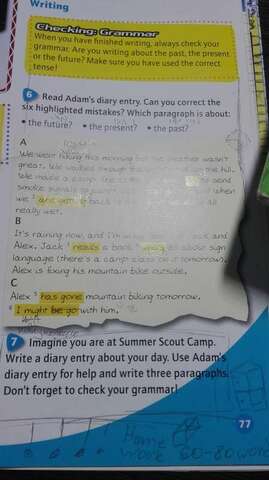 Writing
Checking: Grammar
When you have finished writing, always check your
grammar. Are you writing about the past, the present
or the future? Make sure you have used the correct
tense!
6 Read Adam's diary entry. Can you correct the
six highlighted mistakes? Which paragraph is about:
• the future? • the present? • the past?
A
We went hiking this morning but the weather wasn't
great. We walked through the the hill.
We made a camp fire to send
smoke signals when
we all
really wet.
B
It's raining now, and I'm and
Alex. Jack reads a book about sign
language (there's a camp class on it tomorrow).
Alex is fixing his mountain bike outside.
C
Alex has gone mountain biking tomorrow.
I might be go with him.
7 Imagine you are at Summer Scout Camp.
Write a diary entry about your day. Use Adam's
diary entry for help and write three paragraphs.
Don't forget to check your grammar!
77
Home
work 60-80 word